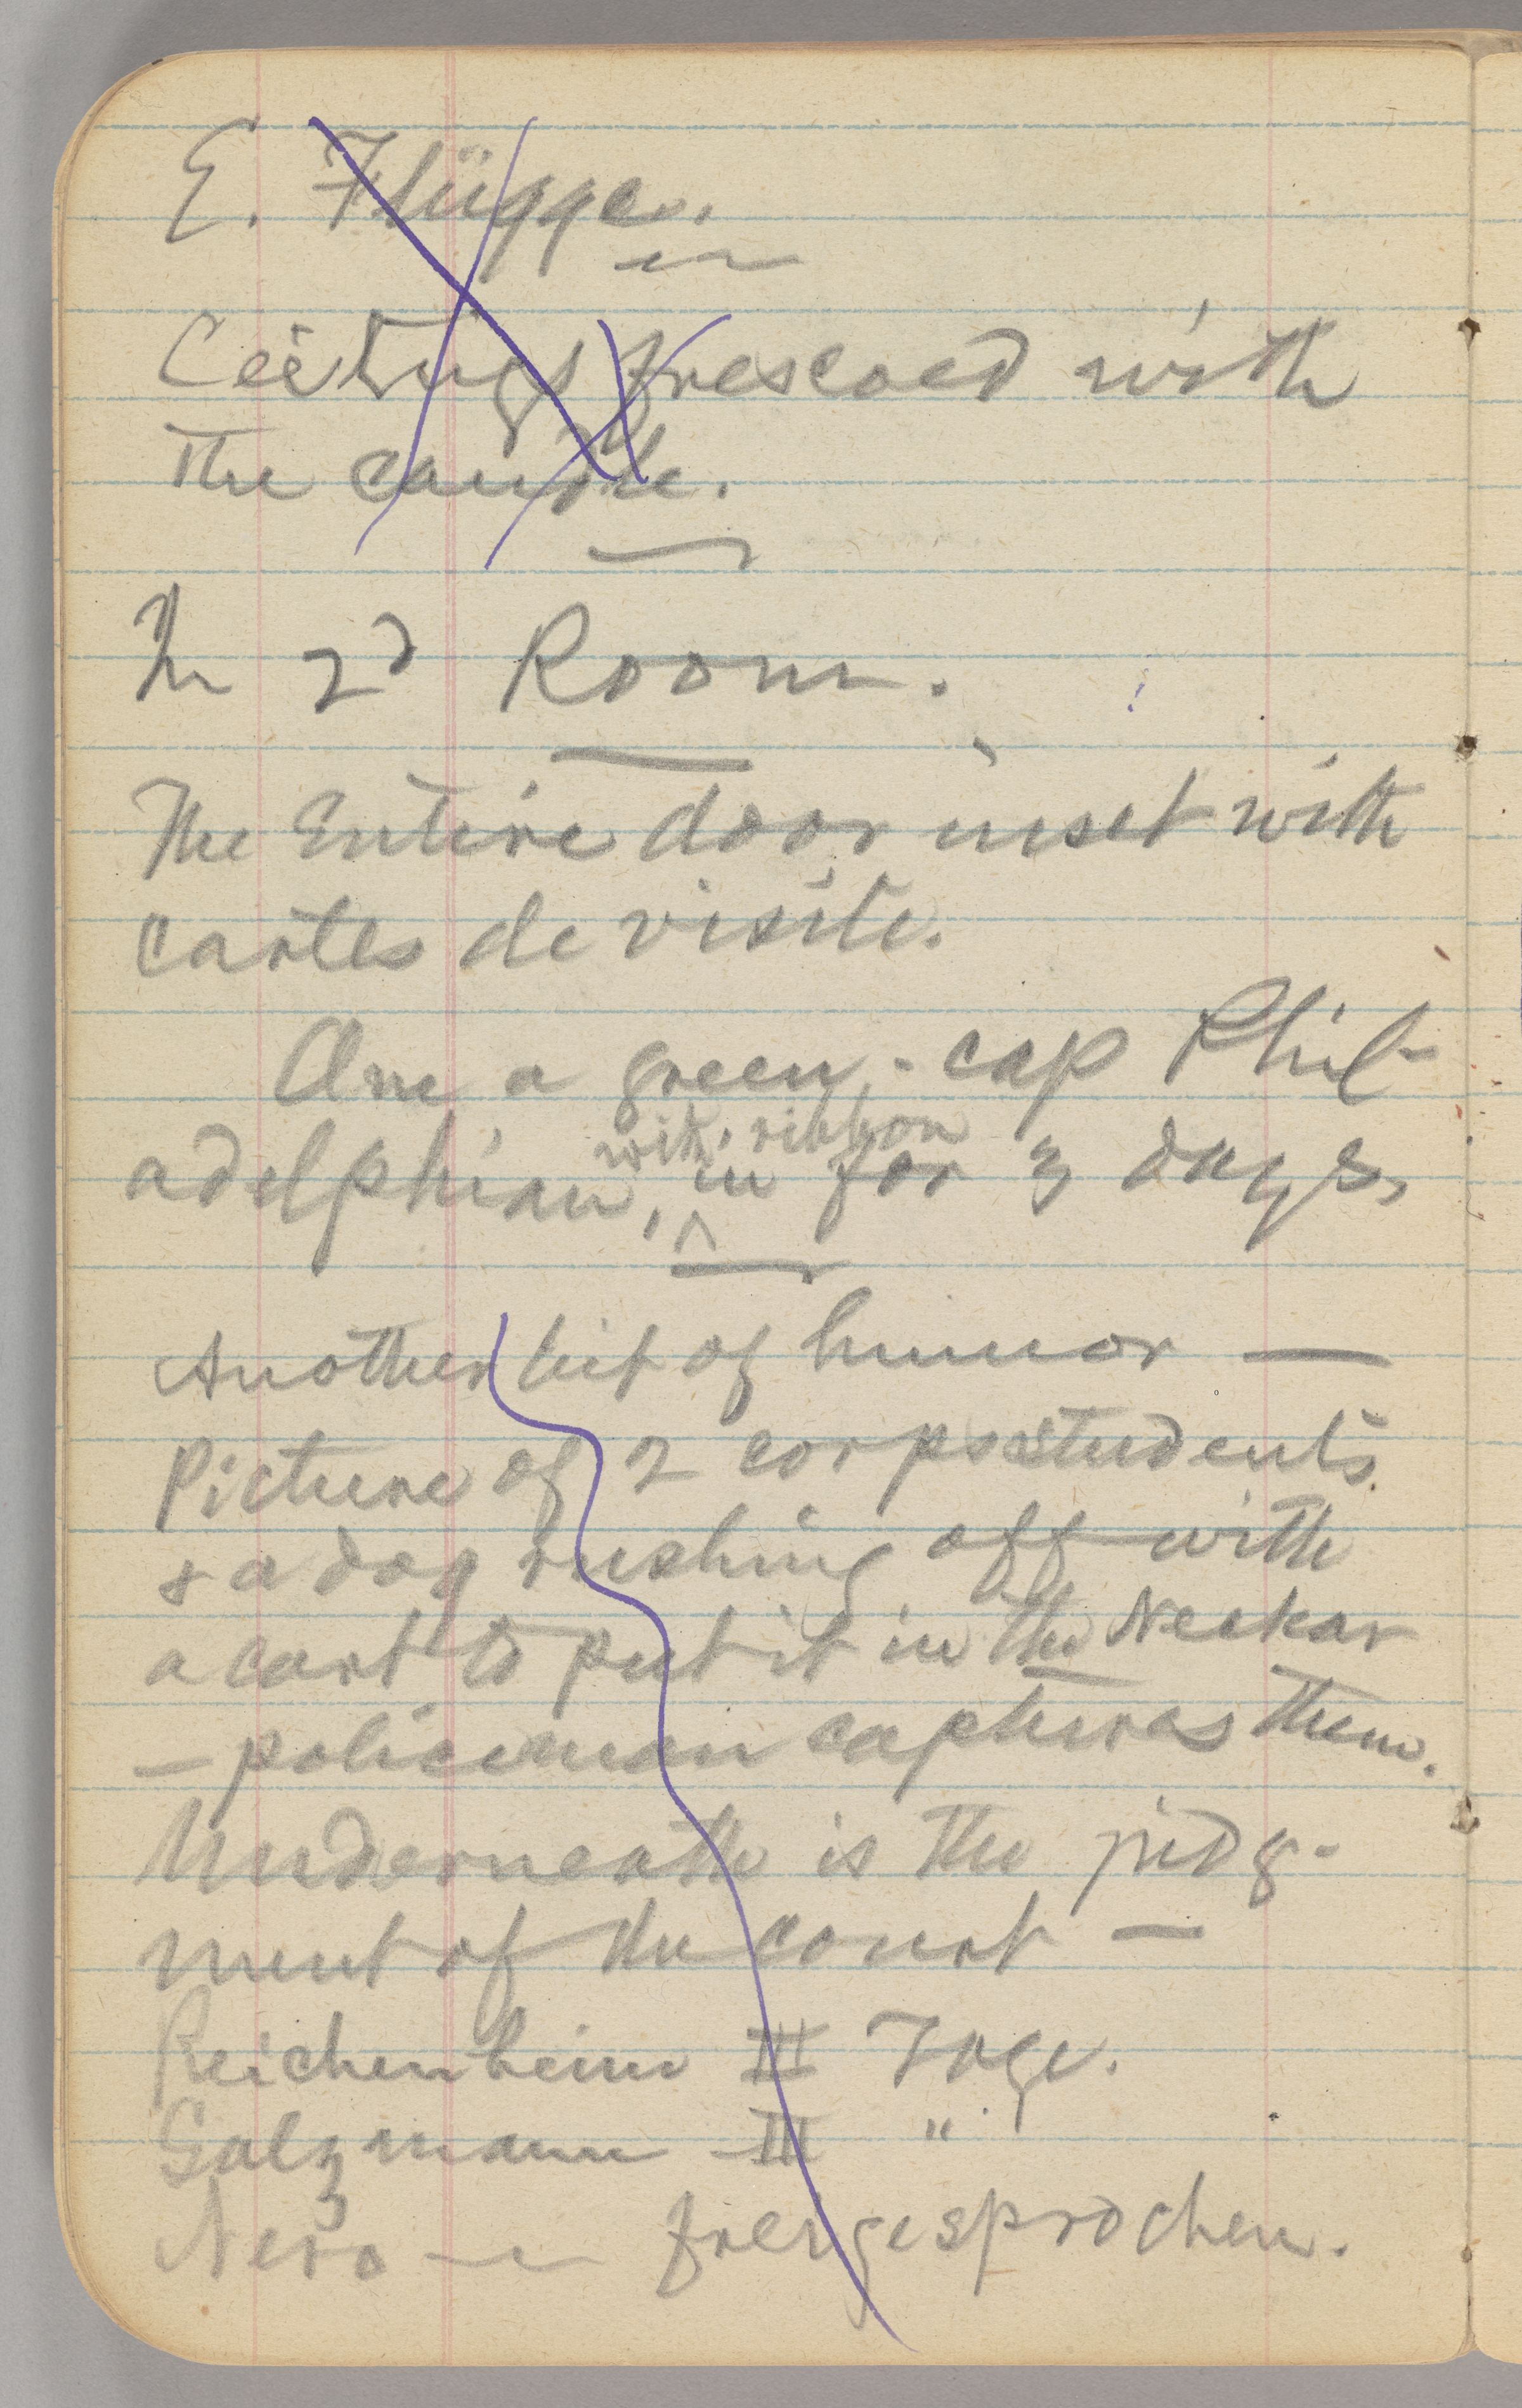 E. Flügge.
Ceilings frescoed with
the candle.
In 2d Room.
The Entire door inset with
cartes de visite.
One a green-cap Phil-
adelphian, with ribbon in for 3 days.
Another bit of humor —
Picture of 2 corps students
& a dog rushing off with
a cart to put it in the Neckar
— policeman captures them.
Underneath is the judg-
ment of the court —
Reichenheim III Tage.
Salzmann — III "
Nero — freigesprochen.